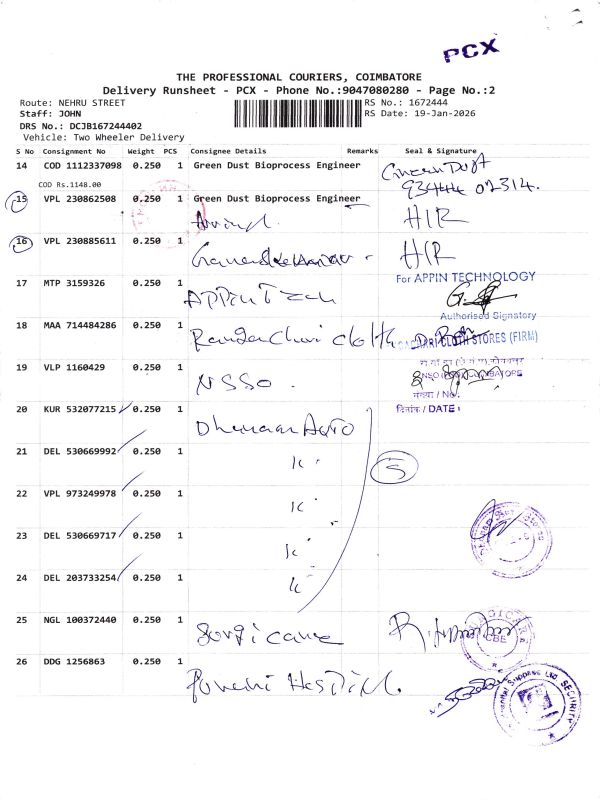 PCX
THE PROFESSIONAL COURIERS, COIMBATORE
Delivery Runsheet - PCX - Phone No.:9047080280 - Page No.:2
Route: NEHRU STREET
RS No.: 1672444
Staff: JOHN
RS Date: 19-Jan-2026
DRS No.: DCJB167244402
Vehicle: Two Wheeler Delivery
S No Consignment No Weight PCS Consignee Details Remarks Seal & Signature
14 COD 1112337098 0.250 1 Green Dust Bioprocess Engineer Green Dust
COD Rs.1148.00
15 VPL 230862508 0.250 1 Green Dust Bioprocess Engineer
16 VPL 230885611 0.250 1
17 MTP 3159326 0.250 1 For APPIN TECHNOLOGY
APPin Tech
Authorised Signatory
18 MAA 714484286 0.250 1
CLOTH STORES (FIRM)
19 VLP 1160429 0.250 1
NSSO
संख्या / No.
20 KUR 532077215 0.250 1 दिनांक / DATE:
21 DEL 530669992 0.250 1
5
22 VPL 973249978 0.250 1
23 DEL 530669717 0.250 1
24 DEL 203733254 0.250 1
25 NGL 100372440 0.250 1
CBE
26 DDG 1256863 0.250 1
SECURITY